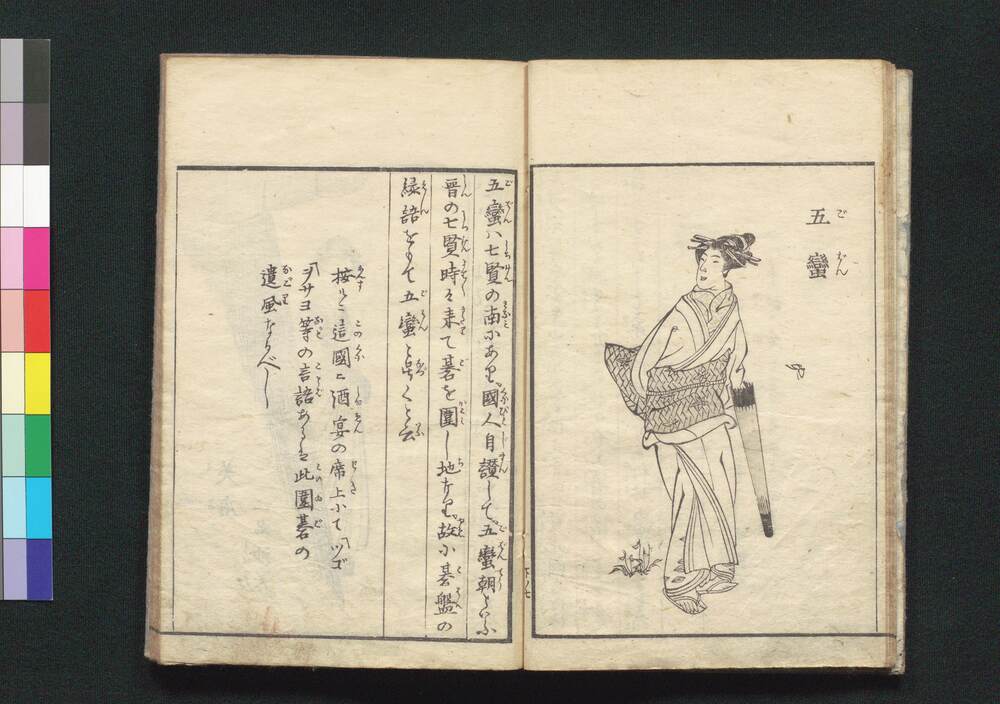 五蠻
ごばん
五蠻ハ七賢の南にあり國人自讃して五蠻朝といふ
晋の七賢時々来て碁を圍し地なり故に碁盤の
縁語をもて五蠻と号くと云
按ルに這國に酒宴の席上にて「ツゴ
「ヲサヨ等の言語あるは此圍碁の
遺風なるべし
下ノ七